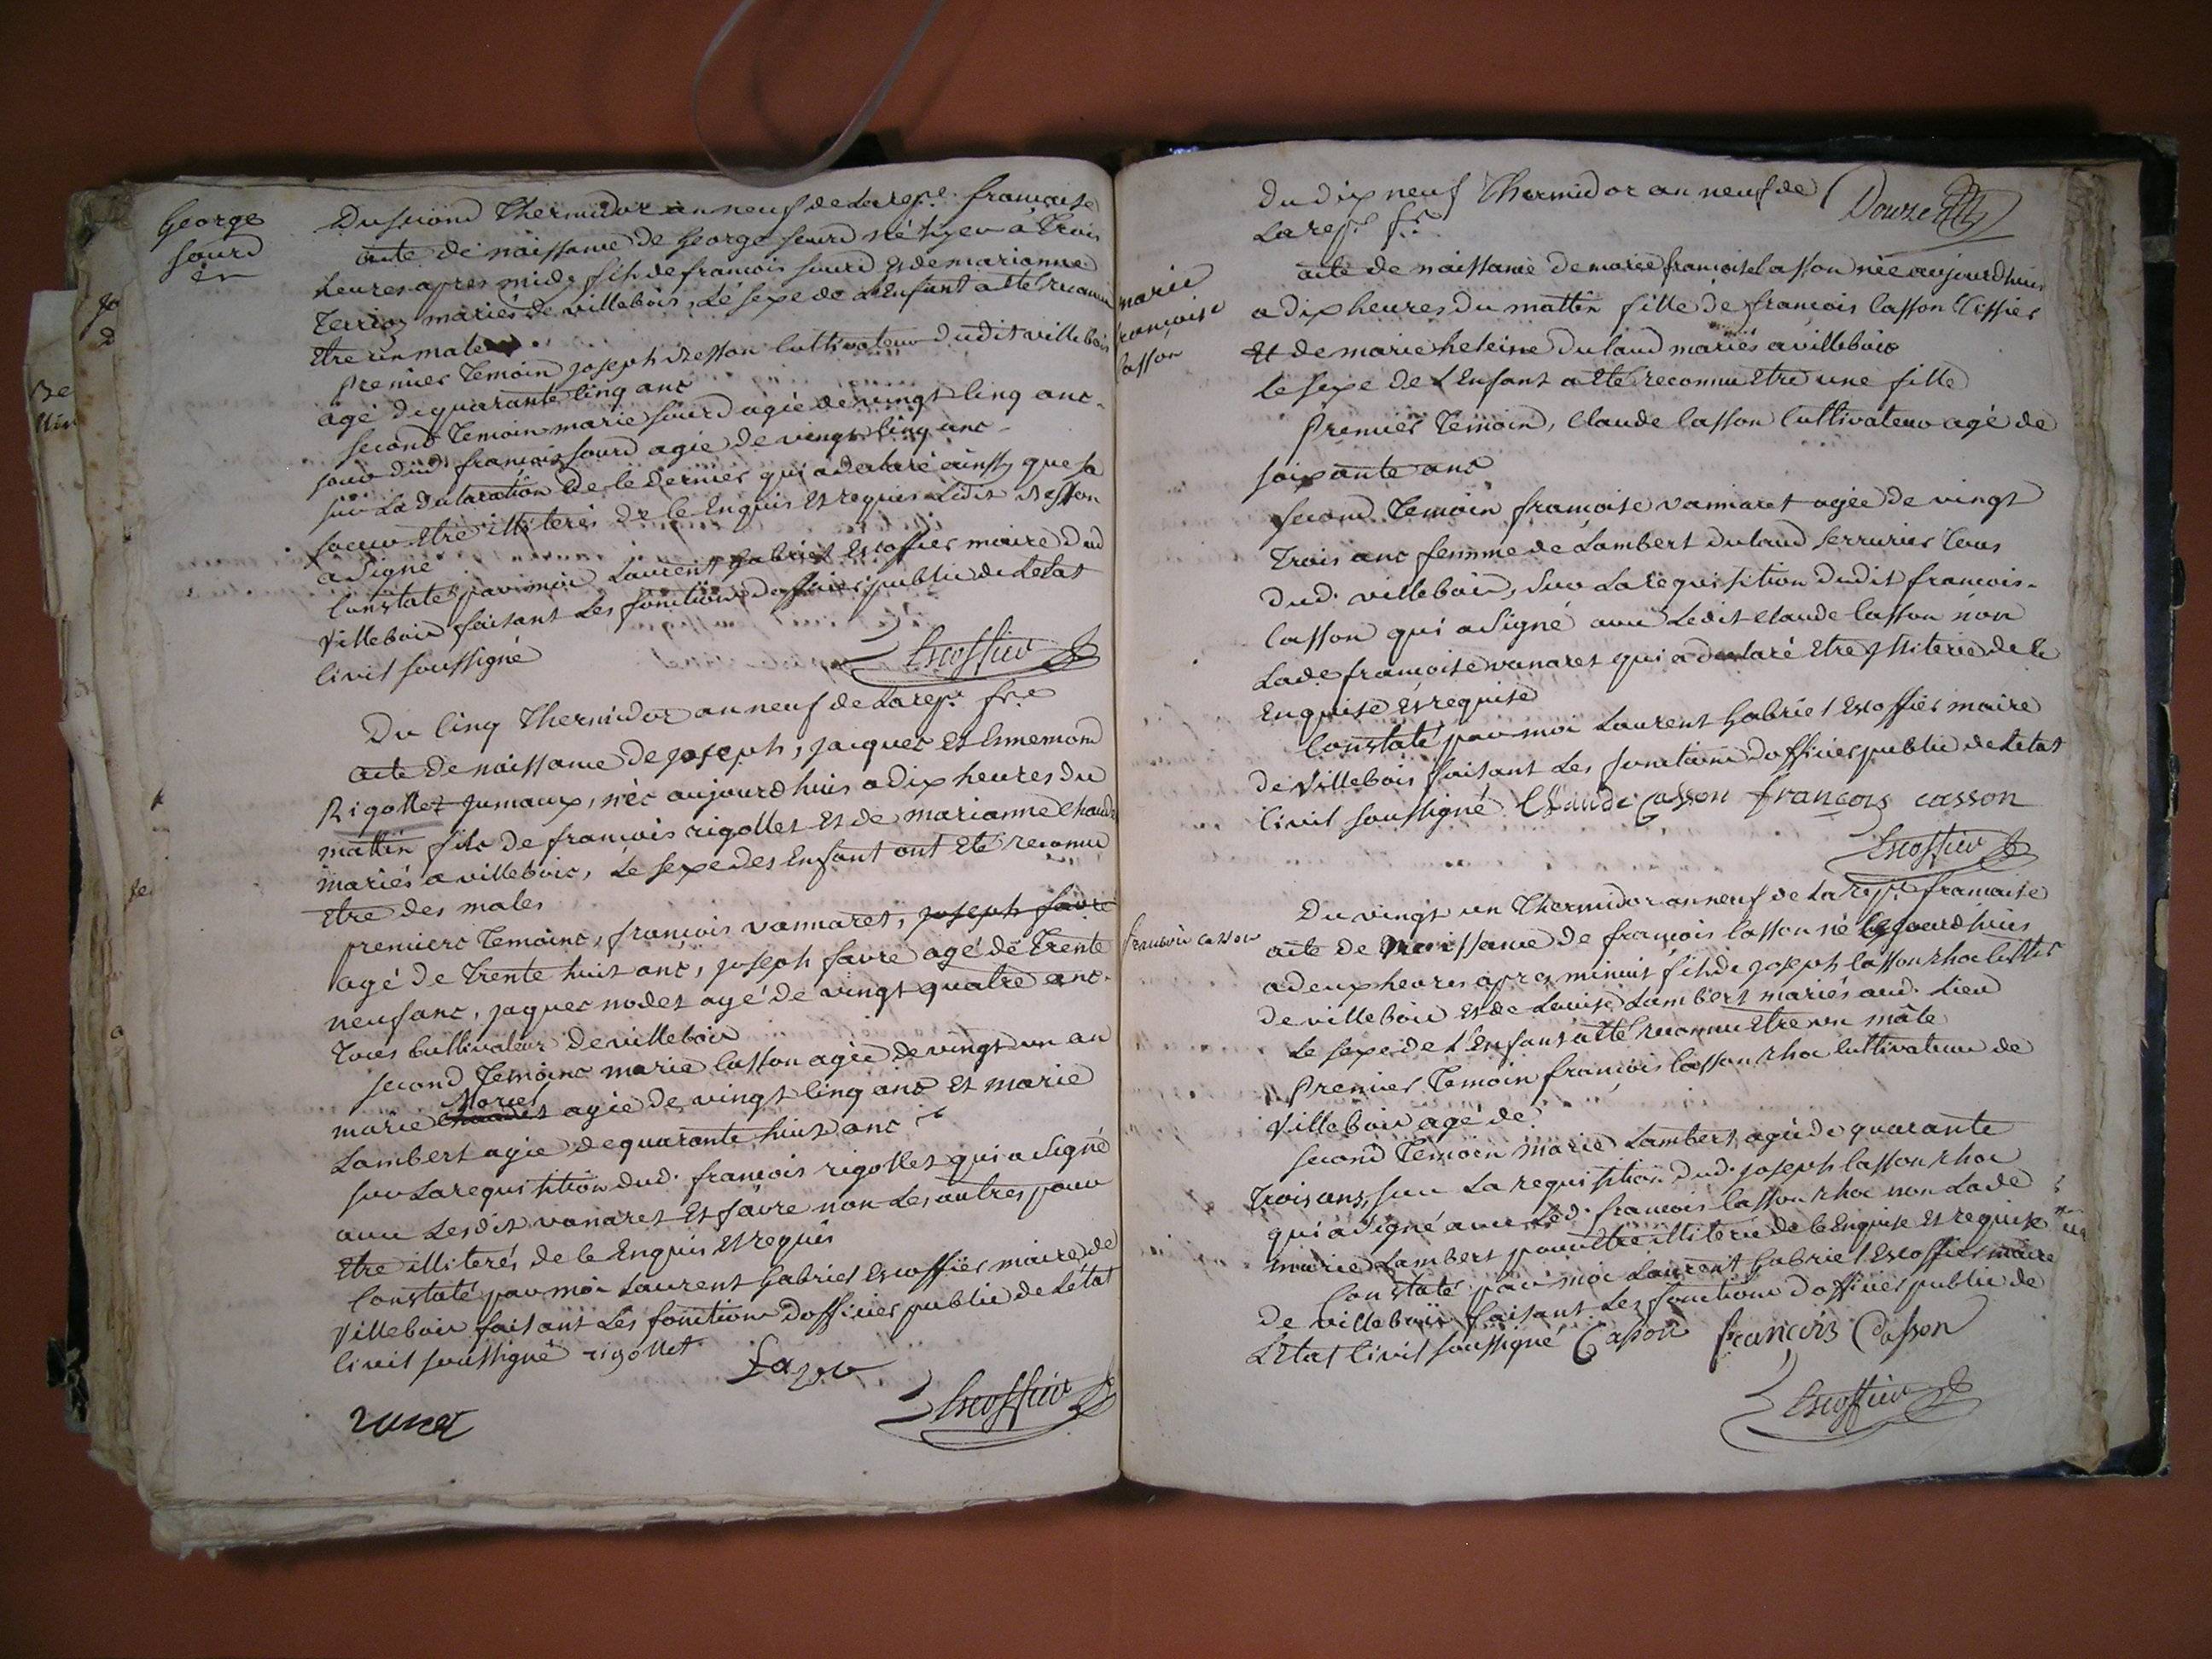 George
sourd
Du second Thermidor an neuf de La rep.e française
acte de naissance de George sourd né hyer à Trois
heures apres midy fils de francois sourd et de marianne
Terrion mariés de villebois, Le sexe de L'Enfant a été reconnu
Etre un male
Premier Temoin joseph Besson Cultivateur dudit villebois
agé de quarante Cinq ans
Second Temoin marie sourd agée de vingt Cinq ans
soeur dud. francois sourd agée de vingt Cinq ans
sur La declaration de Ce dernier qui a declaré ainsy que sa
soeur Etre illiterés de Ce Enquis et requis Ledit Besson
a Signé
Constaté par moi Laurent Gabriel Escoffier maire dud
Villebois faisant Les fonctions dofficier public de Letat
Civil soussigné
Escoffier
Du Cinq Thermidor an neuf de La rep.e fr.e
acte de naissance de joseph, jacques et Ennemond
Rigollet jumaux, nés aujourdhuis a dix heures du
mattin fils de francois rigollet Et de marianne
mariés a villebois, Le sexe des Enfant ont Eté reconnu
Etre des males
premiers Temoins, francois vannaret, joseph favre
agé de Trente huit ans, joseph favre agé de Trente
neuf ans, jaques nodet agé de vingt quatre ans.
Tous Cultivateur de villebois
Second Temoins marie Casson agée de vingt un an
Morel
marie agée de vingt Cinq ans Et marie
Lambert agée de quarante huit ans
sur La requisition dud. francois rigollet qui a Signé
avec Lesdit vanaret Et favre non Les autres pour
Etre illiterés de Ce Enquis Et requis
Constaté par moi Laurent Gabriel Escoffier maire de
Villebois faisant Les fonctions dofficier public de Létat
Civil soussigné rigollet
Escoffier
Du dix neuf Thermidor an neuf de
La rep.e fr.e
Douze
marie
françoise
Casson
acte de naissance de marie francoise Casson née aujourdhuis
a dix heures du mattin fille de francois Casson Tissier
Et de marie heleine Dulaud mariés a villebois
Le sexe de L'Enfant a Eté reconnu Etre une fille
Premier Temoin, Claude Casson Cultivateur agé de
soixante ans
Second Temoin francoise vannaret agée de vingt
Trois ans femme de Lambert Dulaud Serrurier Tous
dud. villebois, Sur La requisition dudit francois
Casson qui a Signé avec Ledit Claude Casson non
Lade francoise vanaret qui a declaré Etre illiterée de Ce
Enquise Et requise
Constaté par moi Laurent Gabriel Escoffier maire
de Villebois faisant Les fonctions dofficier public de Letat
Civil soussigné Claude Casson françois casson
Escoffier
francois casson
Du vingt un Thermidor an neuf de La rep.e francaise
acte de naissance de francois Casson né aujourdhuis
a deux heures apres minuit fils de joseph Casson rhoe
de villebois Et de Louise Lambert mariés aud. Lieu
Le sexe de L'Enfant a Eté reconnu Etre un mâle
Premier Temoin francois Casson rhoe Cultivateur de
Villebois agé de
Second Temoin marie Lambert, agée de quarante
Trois ans, sur La requisition dud. joseph Casson rhoe
qui a signé avec Led. francois Casson rhoe non Lade
marie Lambert pour Etre illiterée de Ce Enquise Et requise
Constaté par moi Laurent Gabriel Escoffier maire
de villebois faisant Les fonctions dofficier public de
Letat Civil soussigné Casson françois Casson
Escoffier